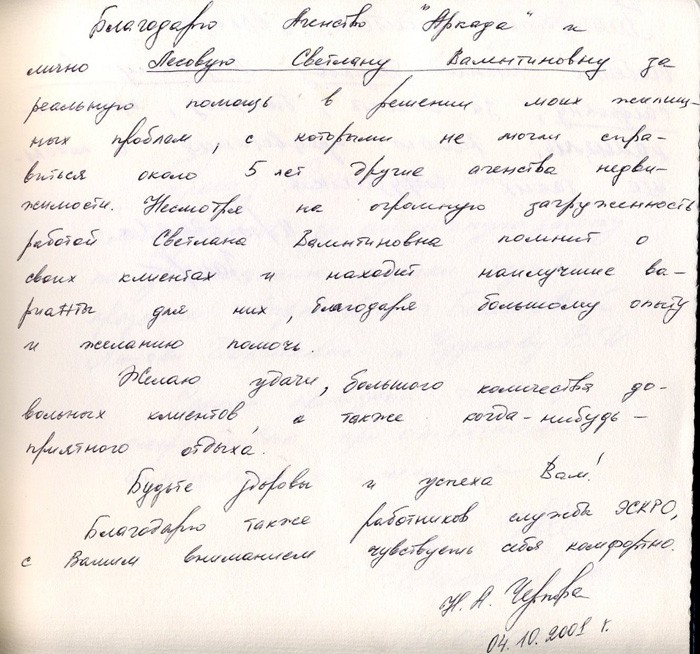 Благодарю Агенство "Аркада" и
лично Лесовую Светлану Валентиновну за
реальную помощь в решении моих жилищ-
ных проблем, с которыми не могли спра-
виться около 5 лет другие агенства недви-
жимости. Несмотря на огромную загруженность
работой Светлана Валентиновна помнит о
своих клиентах и находит наилучшие ва-
рианты для них, благодаря большому опыту
и желанию помочь.
Желаю удачи, большого количества до-
вольных клиентов, а также когда-нибудь -
приятного отдыха.
Будьте здоровы и успеха Вам!
Благодарю также работников службы ЭСКРО,
с Вашим вниманием чувствуешь себя комфортно.
Н. А.
04.10.2001 г.